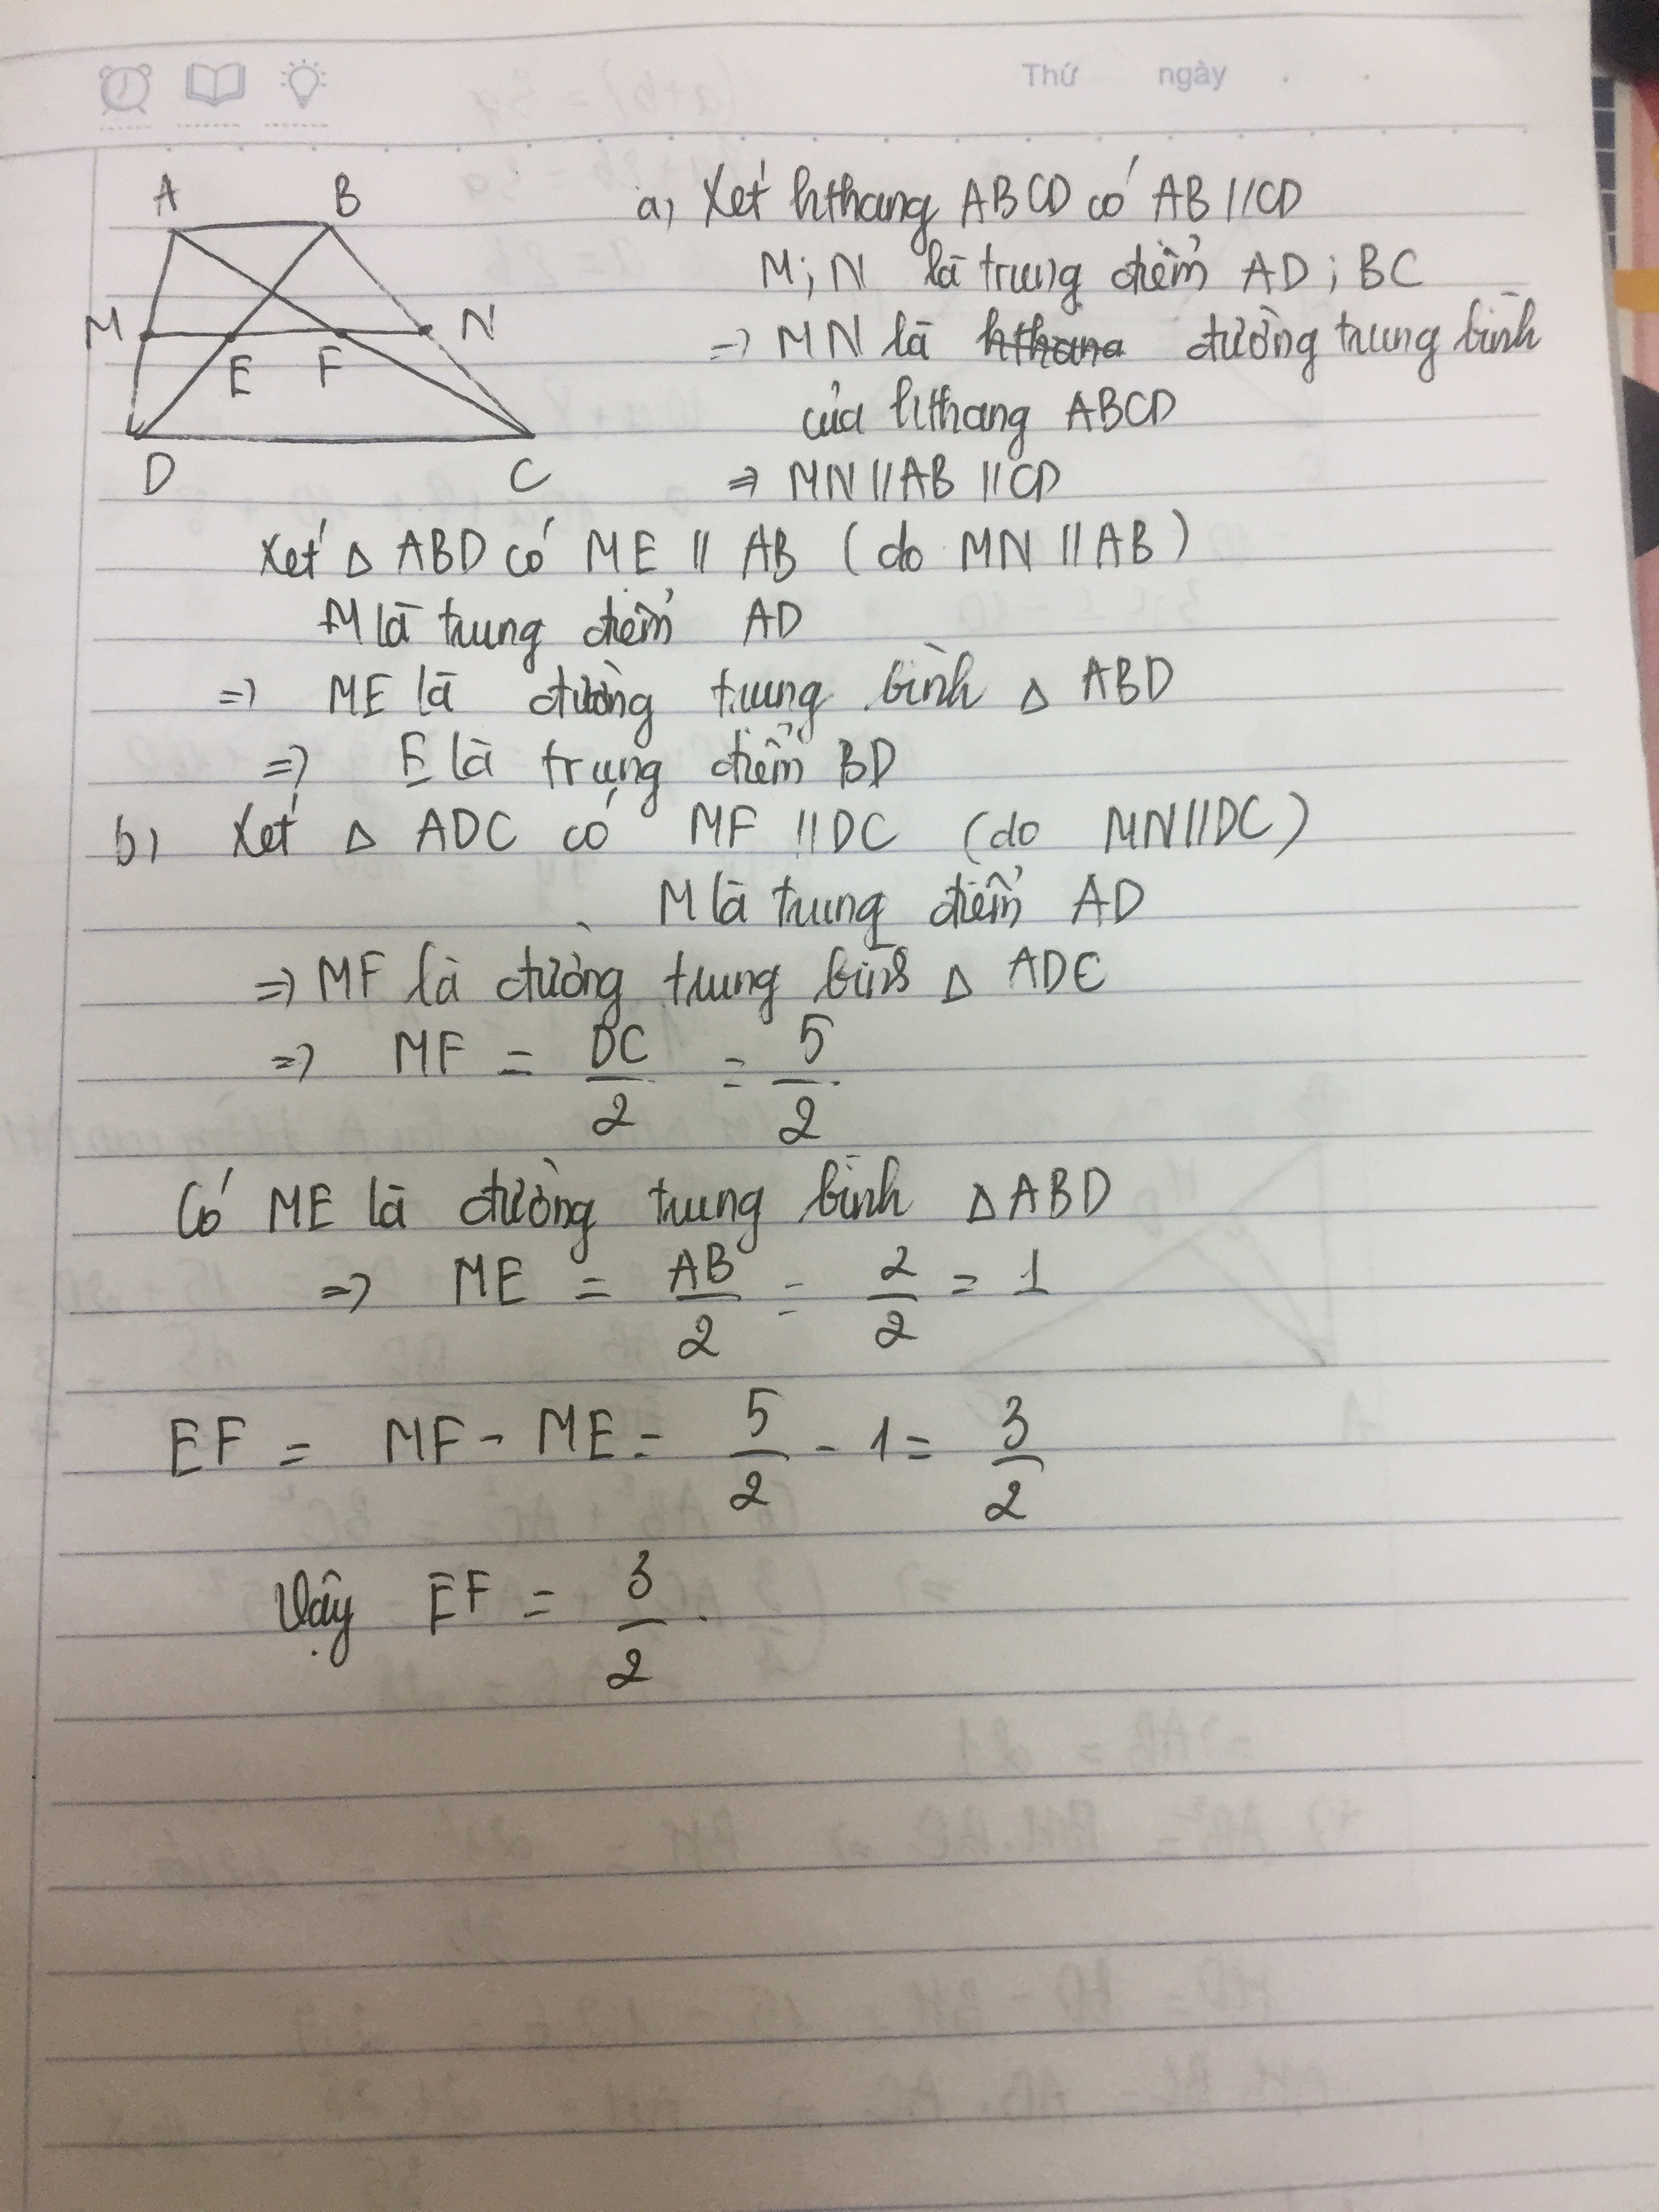 Thứ ngày . .
A B
M N
E F
D C
a, Xét hthang ABCD có AB//CD
M; N là trung điểm AD; BC
=> MN là hthang đường trung bình
của hthang ABCD
=> MN // AB // CD
Xét Δ ABD có ME // AB (do MN // AB)
M là trung điểm AD
=> ME là đường trung bình Δ ABD
=> E là trung điểm BD
b, Xét Δ ADC có MF // DC (do MN//DC)
M là trung điểm AD
=> MF là đường trung bình Δ ADC
=> MF = DC/2 = 5/2
Có ME là đường trung bình Δ ABD
=> ME = AB/2 = 2/2 = 1
EF = MF - ME = 5/2 - 1 = 3/2
Vậy EF = 3/2.